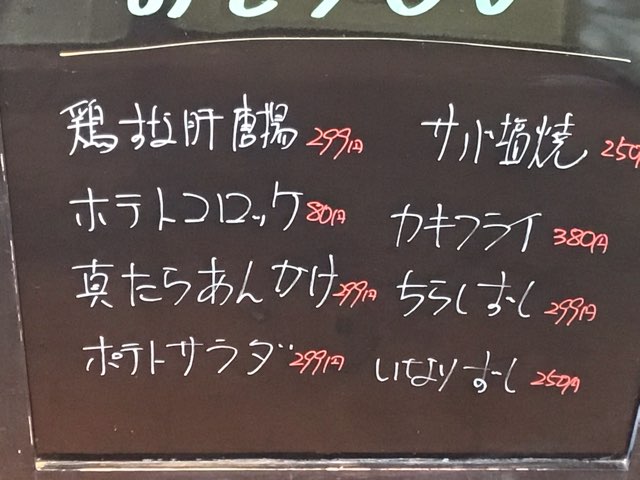 鶏すな肝唐揚 299円
ポテトコロッケ 80円
真たらあんかけ 299円
ポテトサラダ 299円
サバ塩焼 250円
カキフライ 380円
ちらしずし 299円
いなりずし 250円